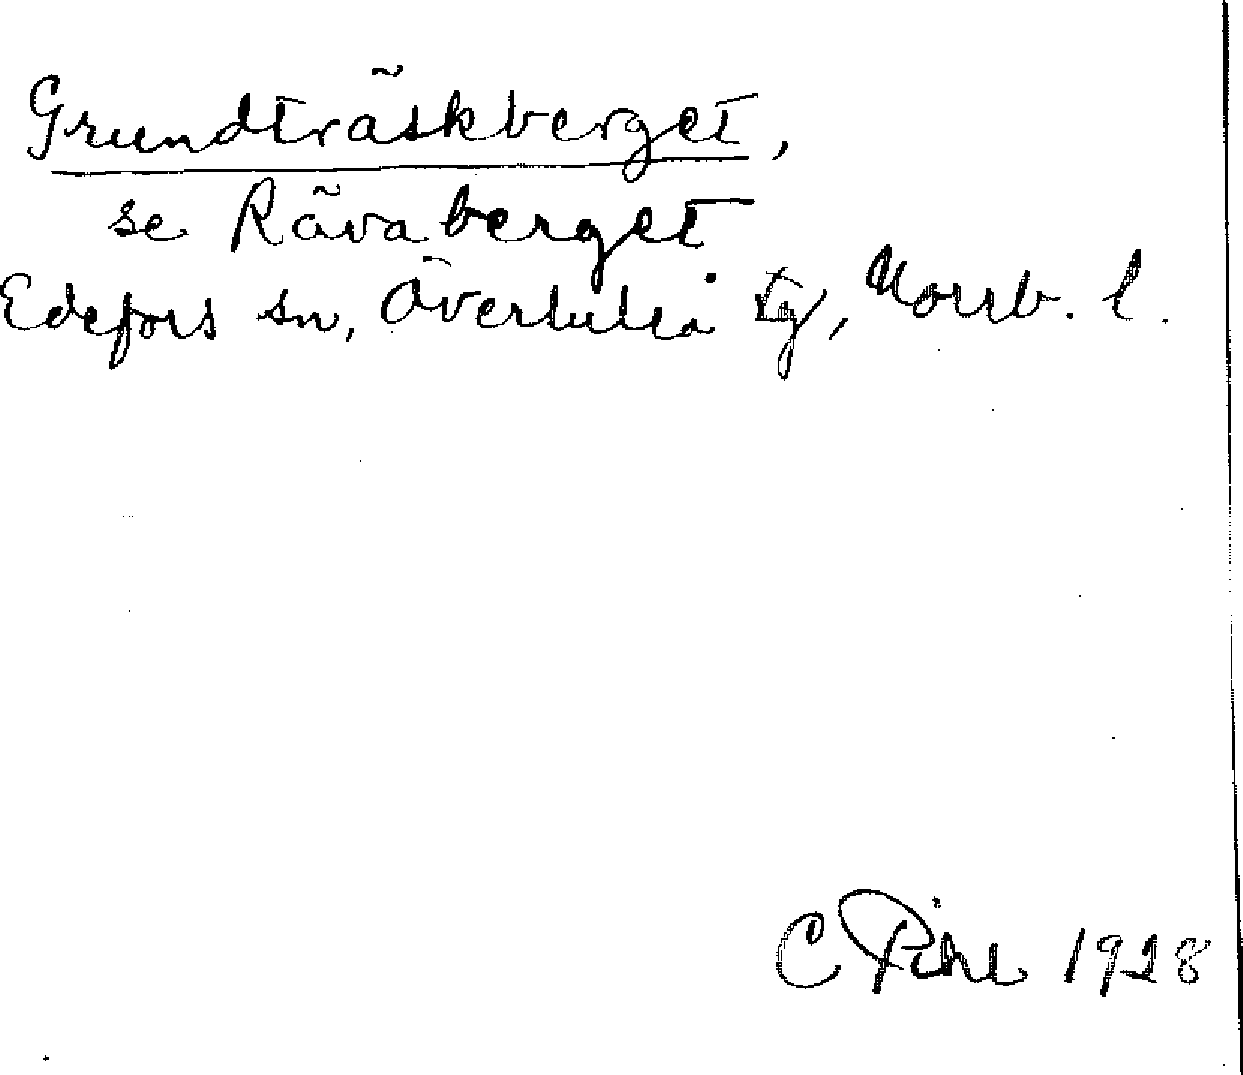 Grundträskberget,
se Rävaberget
Edefors sn, Överluleå tg, Norrb. l.
C Pihl 1928